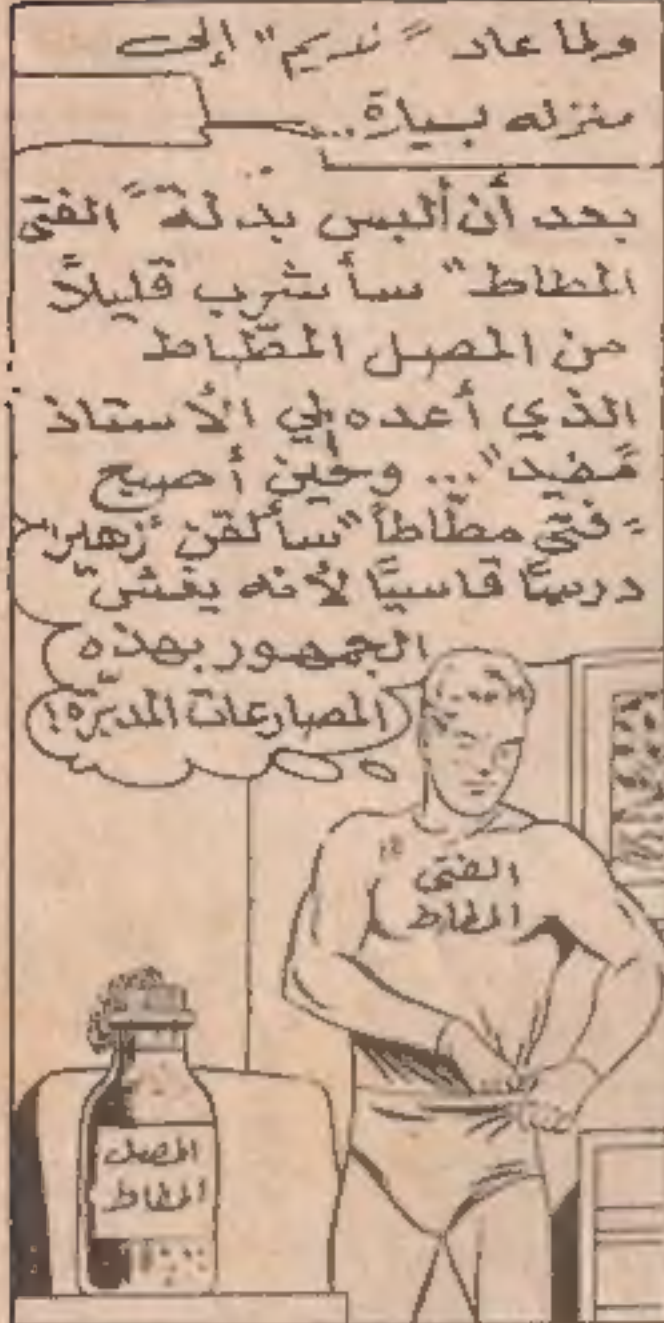 ولما عاد "نديم" إلى
منزله بسيارة...
بعد أن ألبس بدلة "الفتى
المطاط" سأشرب قليلاً
من المصل المطّاط
الذي أعده لي الأستاذ
"مفيد"... وحين أصبح
"فتى مطّاطاً" سألقن "زهير"
درسًا قاسيًا لأنه يغشّ
الجمهور بهذه
المصارعات المدبّرة!
الفتى
المطاط
المصل
المطاط